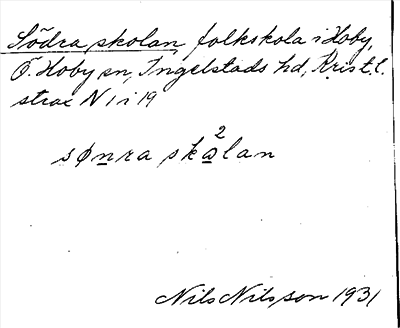 Södra skolan, folkskola i Hoby,
Ö. Hoby sn, Ingelstads hd, Krist.l.
strax N 1 i 19
sønra sk²ɷlan
Nils Nilsson 1931